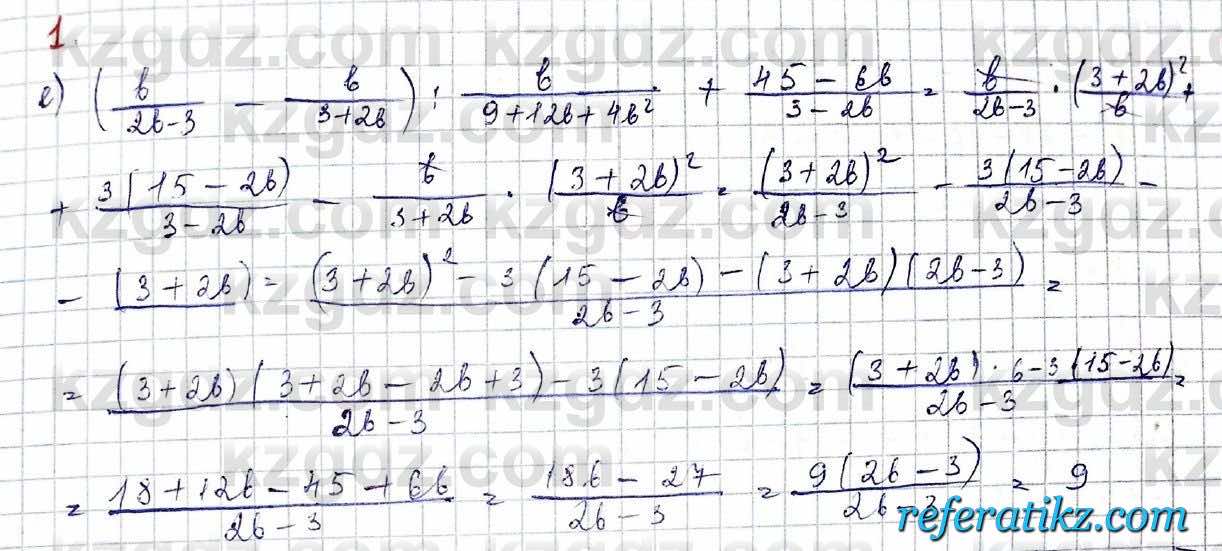 1.
e) (b/(2b-3) - b/(3+2b)) : b/(9+12b+4b²) + (45-6b)/(3-2b) = b/(2b-3) · (3+2b)²/b +
+ 3(15-2b)/(3-2b) - b/(3+2b) · (3+2b)²/b = (3+2b)²/(2b-3) - 3(15-2b)/(2b-3) -
- (3+2b) = ((3+2b)² - 3(15-2b) - (3+2b)(2b-3))/(2b-3) =
= ((3+2b)(3+2b-2b+3) - 3(15-2b))/(2b-3) = ((3+2b)·6-3(15-2b))/(2b-3) =
= (18+12b-45+6b)/(2b-3) = (18b-27)/(2b-3) = 9(2b-3)/(2b-3) = 9
referatikz.com
kzgdz.com